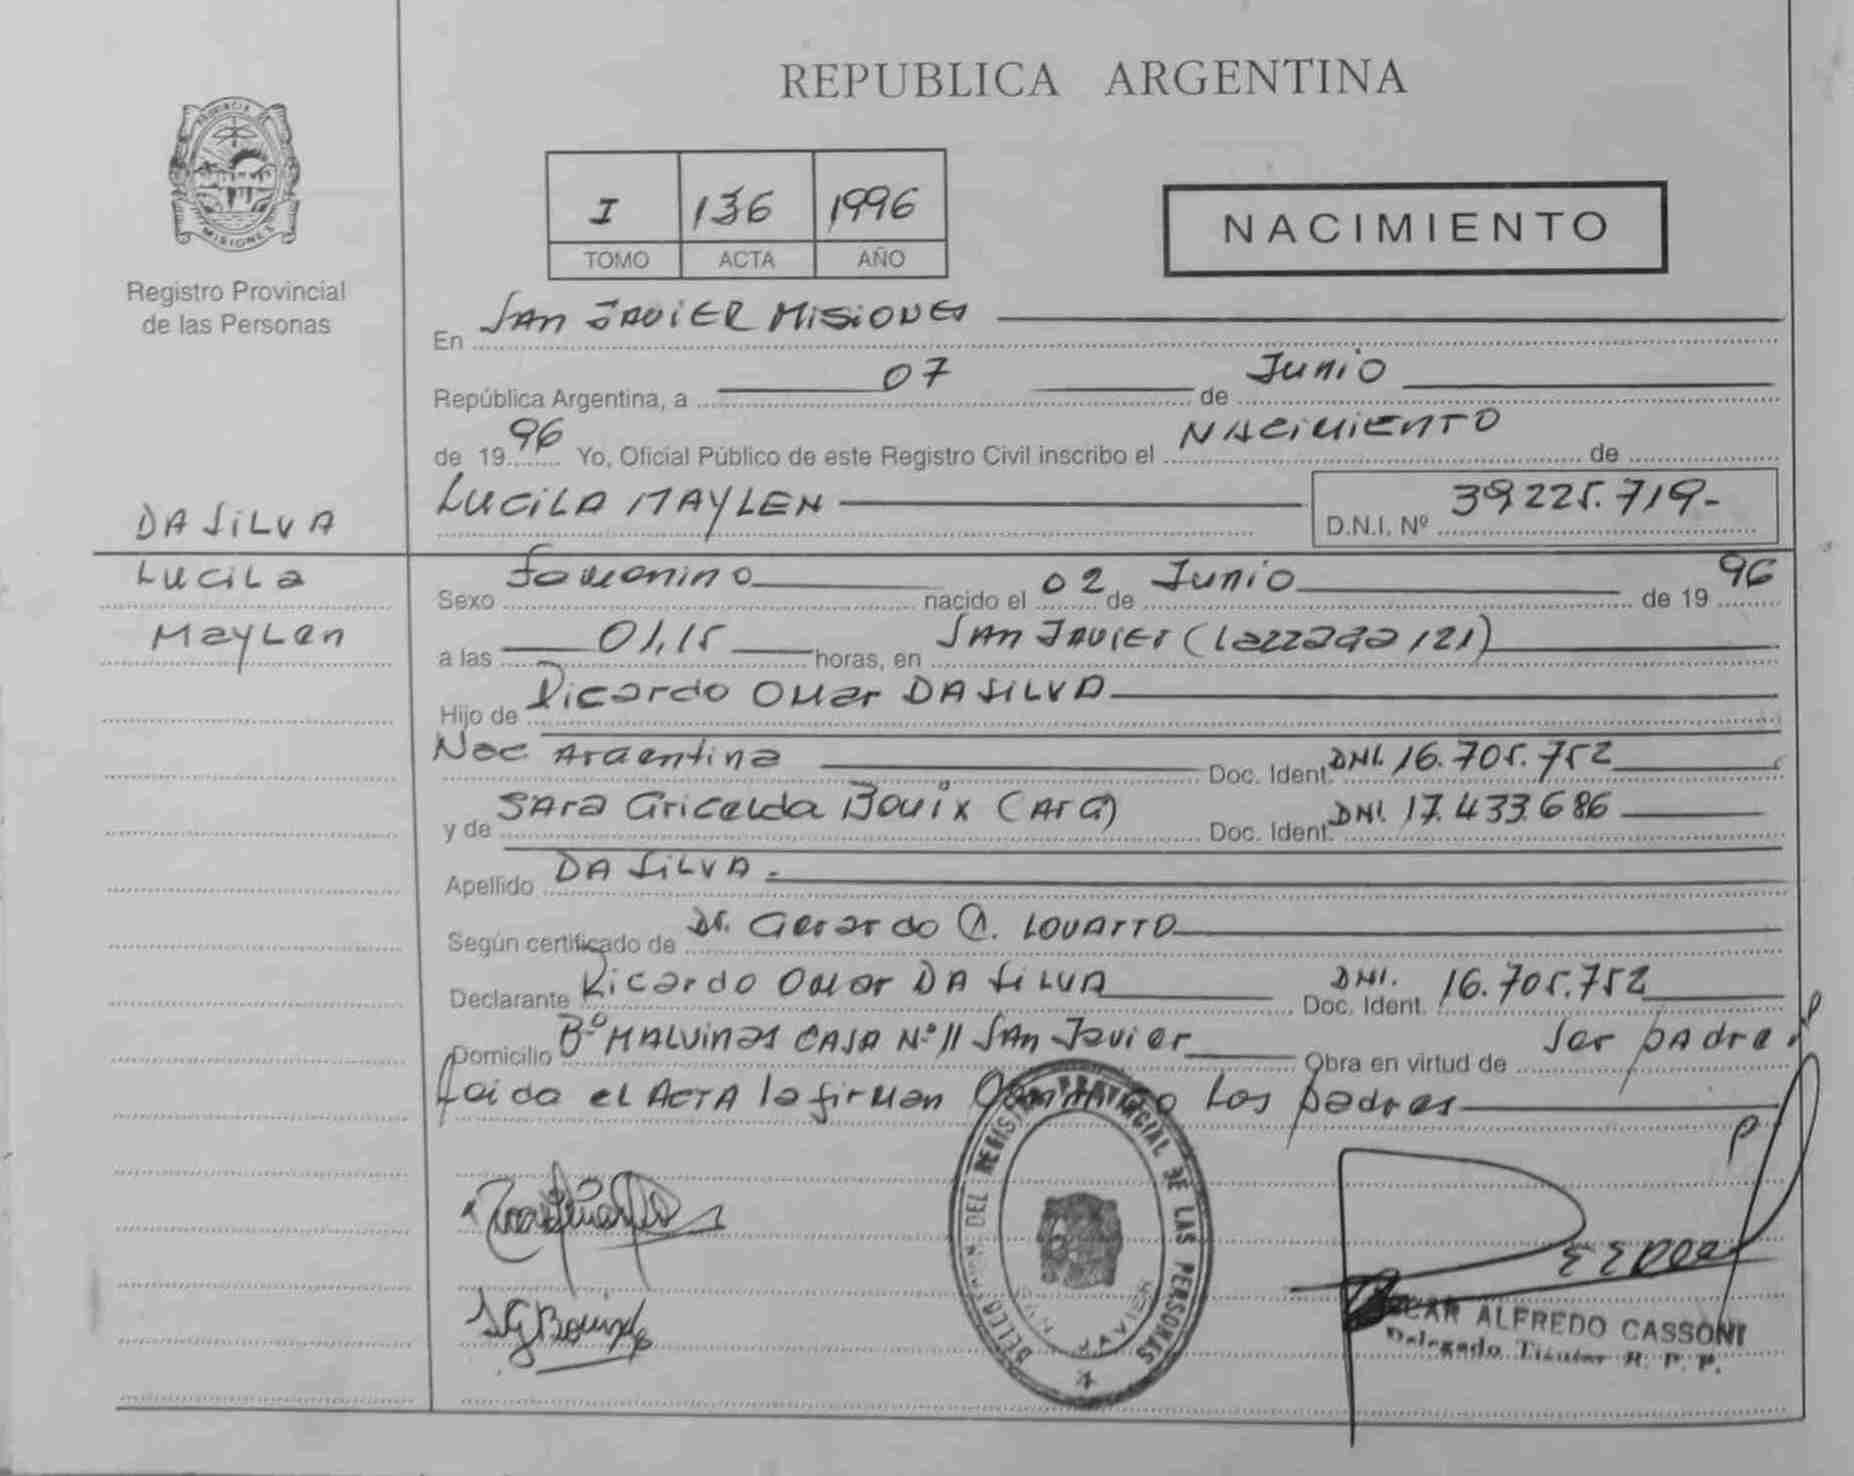 REPUBLICA ARGENTINA
PROVINCIA DE
MISIONES
Registro Provincial
de las Personas
I 136 1996
TOMO ACTA AÑO
NACIMIENTO
En SAn JAViER MiSiONES
República Argentina, a 07 de Junio
de 1996 Yo, Oficial Público de este Registro Civil inscribo el NACiMiENTO de
LUCiLA MAYLEN D.N.I. Nº 39.225.719-
DA SiLVA
Lucila
Maylen
Sexo Femenino nacido el 02 de Junio de 1996
a las 01,15 horas, en SAn JAVIER ( 121)
Hijo de Ricardo Omar DA SILVA
Nac Argentina Doc. Ident. DNI. 16.705.752
y de SAra Gricelda Bouix (ArG) Doc. Ident. DNI. 17.433.686
Apellido DA SiLVA.
Según certificado de Dr. Gerardo LOVATTO
Declarante Ricardo Omar DA SiLVA Doc. Ident. DNI. 16.705.752
Domicilio Bº MALVinas CASA Nº 11 SAn Javier Obra en virtud de Ser padre
Leida el ACTA la firman los padres
DELEGACION DEL REGISTRO PROVINCIAL DE LAS PERSONAS
SAN JAVIER
SGBouix
OSCAR ALFREDO CASSONI
Delegado Titular R. P. P.